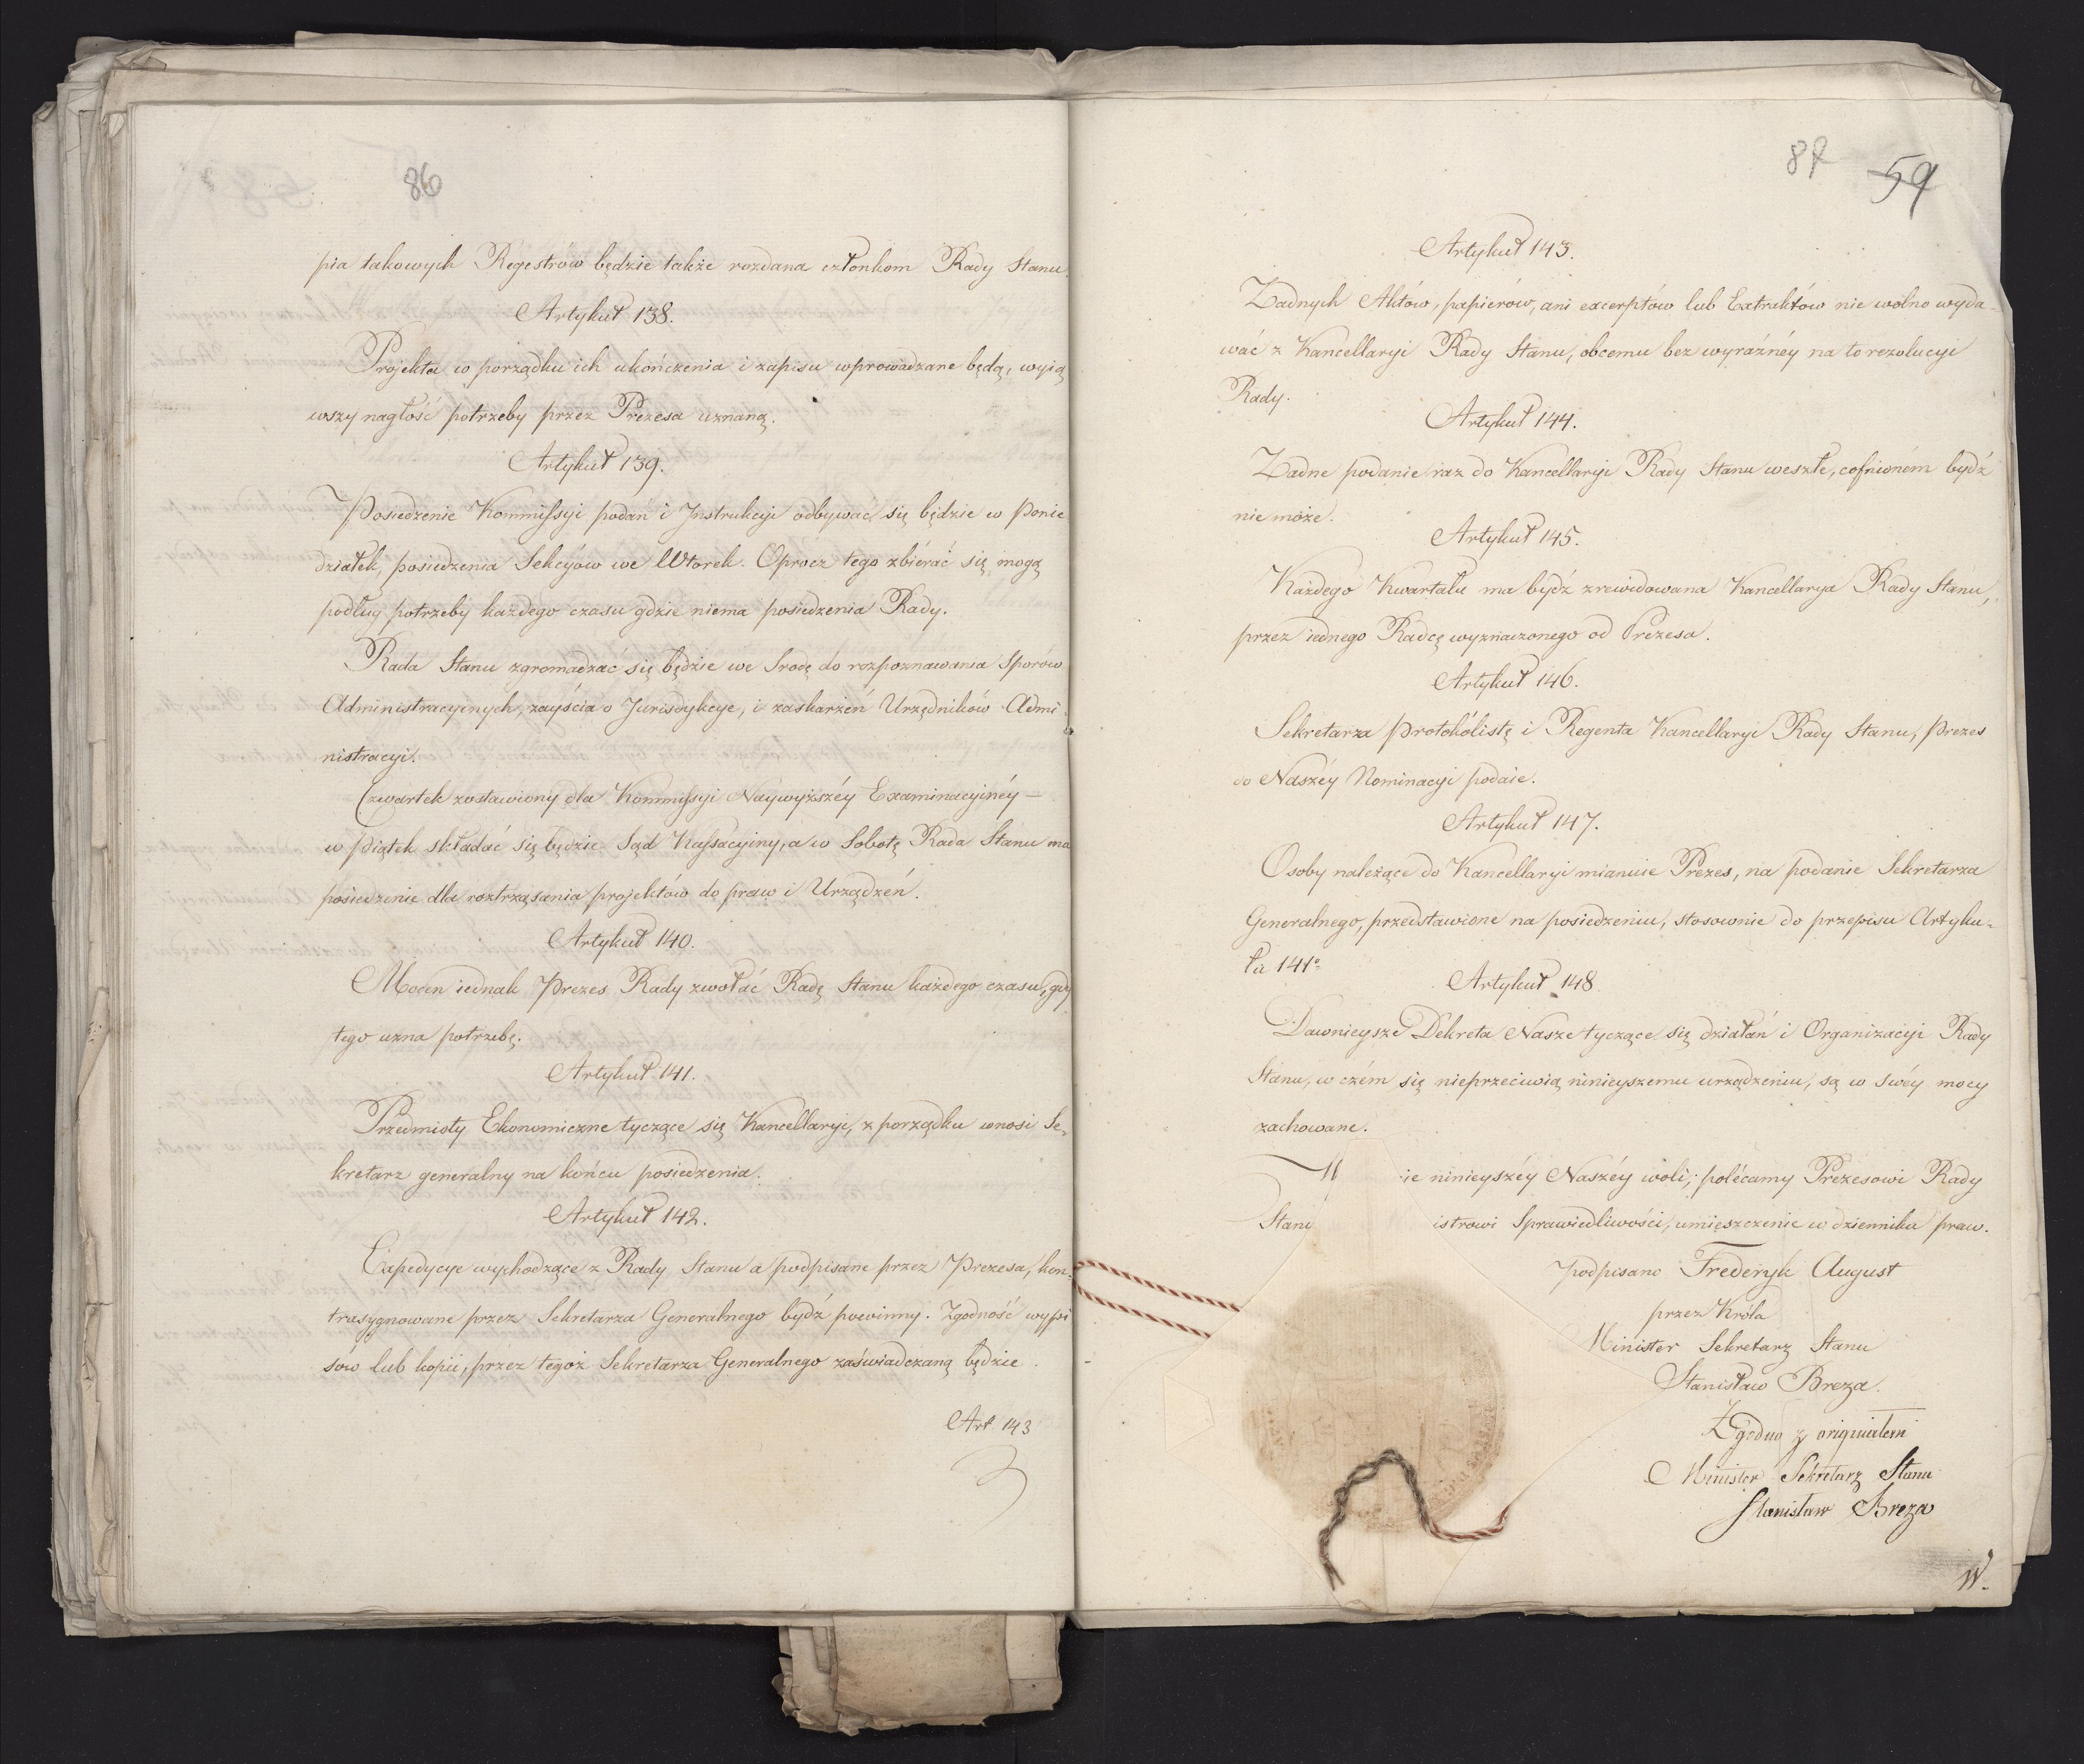 86
pia takowych Regestrów będzie także rozdana członkom Rady Stanu.
Artykuł 138.
Projekta w porządku ich ukończenia i zapisu wprowadzane będą, wyią
wszy nagłość potrzeby przez Prezesa uznaną.
Artykuł 139.
Posiedzenie Kommissyi podań i Jnstrukcyi odbywać się będzie w Ponie
działek, posiedzenia Sekcyów we Wtorek. Oprocz tego zbiérać się mogą
podług potrzeby każdego czasu gdzie niema posiedzenia Rady.
Rada Stanu zgromadzać się będzie we Srodę do rozpoznawania Sporów
Administracyinych, zayścia o Jurisdykcye, i zaskarżeń Urzędników Admi
nistracyi.
Czwartek zostawiony dla Kommissyi Naywyższéy Examinacyinéy —
w Piątek składać się będzie Sąd Kassacyiny, a w Sobotę Rada Stanu ma
posiedzenie dla roztrząsania projektów do praw i Urządzeń.
Artykuł 140.
Mocen iednak Prezes Rady zwołać Radę Stanu każdego czasu, gdy
tego uzna potrzebę.
Artykuł 141.
Przedmioty Ekonomiczne tyczące się Kancellaryi, z porządku wnosi Se„
kretarz generalny na końcu posiedzenia.
Artykuł 142.
Expedycye wychodzące z Rady Stanu a podpisane przez Prezesa, kon„
trasygnowane przez Sekretarza Generalnego bydź powinny. Zgodność wypi
sow lub kopii, przez tegoż Sekretarza Generalnego zaświadczaną będzie.
Art 143
87 59
Artykuł 143.
Zadnych Aktów, papierów, ani excerptów lub Extraktów nie wolno wyda„
wać z Kancellaryi Rady Stanu, obcemu bez wyraźnéy na to rezolucyi
Rady.
Artykuł 144.
Zadne podanie raz do Kancellaryi Rady Stanu weszłe, cofnioném bydź
nie może.
Artykuł 145.
Każdego Kwartału ma bydź zrewidowana Kancellarya Rady Stanu,
przez iednego Radcę wyznaczonego od Prezesa.
Artykuł 146.
Sekretarza Protokólistę i Regenta Kancellaryi Rady Stanu, Prezes
do Naszéy Nominacyi podaie.
Artykuł 147.
Osoby należące do Kancellaryi mianuie Prezes, na podanie Sekretarza
Generalnego, przedstawione na posiedzeniu, stosownie do przepisu Artyku„
ła 141º
Artykuł 148
Dawnieysze Dekreta Nasze tyczące się działań i Organizacyi Rady
Stanu, w czém się nieprzeciwią ninieyszemu urządzeniu, są w swéy mocy
zachowane.
ie ninieyszéy Naszéy woli, polécamy Prezesowi Rady
Stanu istrowi Sprawiedliwości, umieszczenie w dzienniku praw.
Podpisano Frederyk August
przez Króla
Minister Sekretarz Stanu
Stanisław Breza.
Zgodno z originałem
Minister Sekretarz Stanu
Stanisław Breza